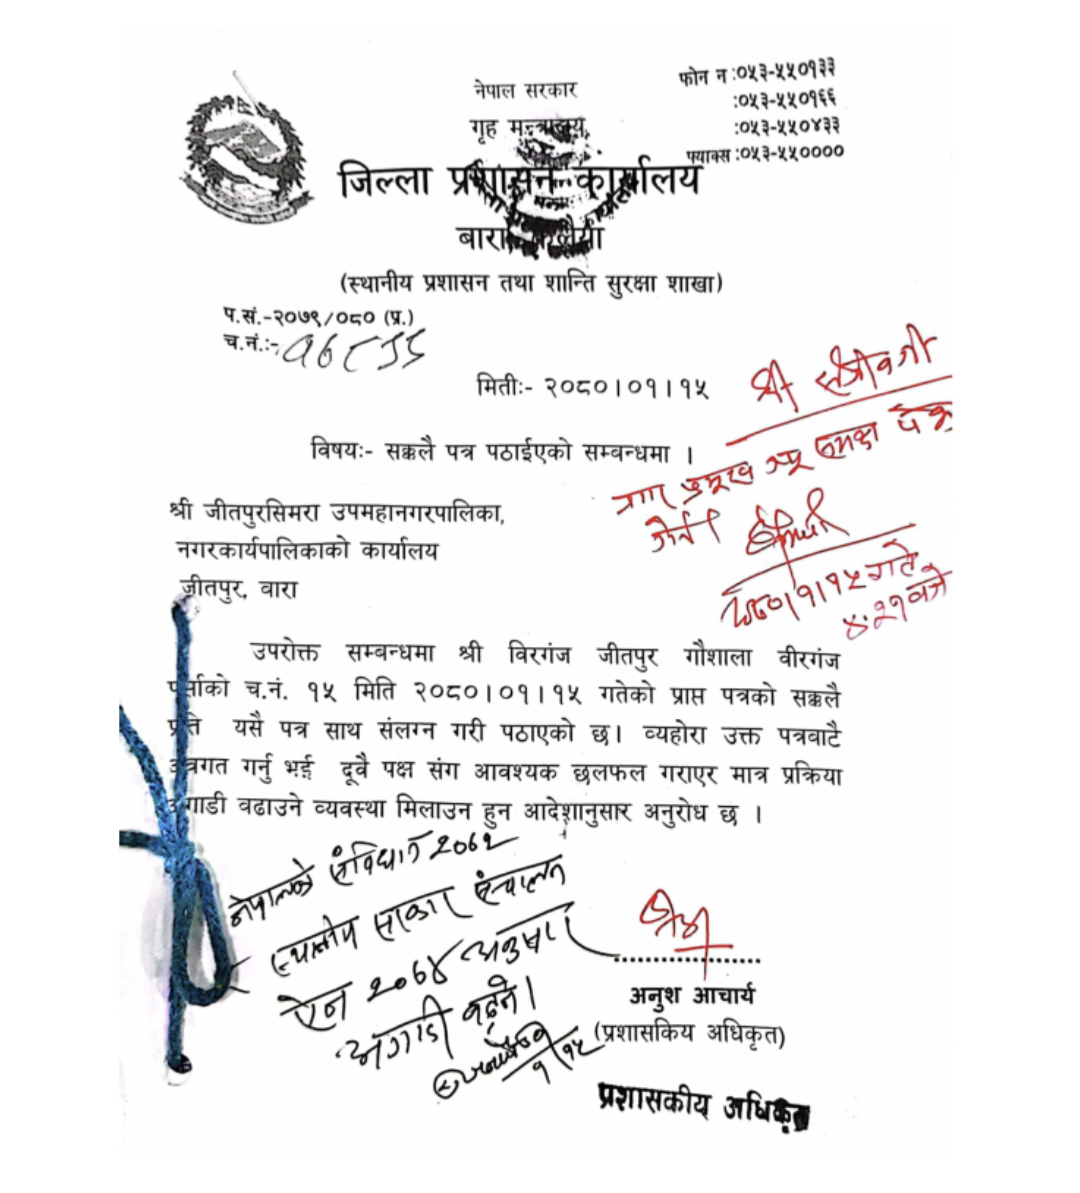 नेपाल सरकार
गृह मन्त्रालय
फोन न :०५३-५५०१३३
:०५३-५५०१६६
:०५३-५५०४३३
फ्याक्स :०५३-५५००००
जिल्ला प्रशासन कार्यालय
बारा कलैया
(स्थानीय प्रशासन तथा शान्ति सुरक्षा शाखा)
प.सं.-२०७९/०८० (प्र.)
च.नं.:-
मितीः- २०८०।०१।१५
विषयः- सक्कलै पत्र पठाईएको सम्बन्धमा ।
श्री जीतपुरसिमरा उपमहानगरपालिका,
नगरकार्यपालिकाको कार्यालय
जीतपुर, बारा
श्री
प्रमुख ज्यू समक्ष पेश
२०८०।१।१५ गते
४:२१ बजे
उपरोक्त सम्बन्धमा श्री विरगंज जीतपुर गौशाला वीरगंज
पर्साको च.नं. १५ मिति २०८०।०१।१५ गतेको प्राप्त पत्रको सक्कलै
प्रति यसै पत्र साथ संलग्न गरी पठाएको छ। व्यहोरा उक्त पत्रबाटै
अवगत गर्नु भई दूवै पक्ष संग आवश्यक छलफल गराएर मात्र प्रक्रिया
अगाडी वढाउने व्यवस्था मिलाउन हुन आदेशानुसार अनुरोध छ ।
नेपालको संविधान २०७२
स्थानीय सरकार संचालन
ऐन २०७४ अनुसार
अगाडी बढ्ने।
१/१५
अनुश आचार्य
(प्रशासकिय अधिकृत)
प्रशासकीय अधिकृत